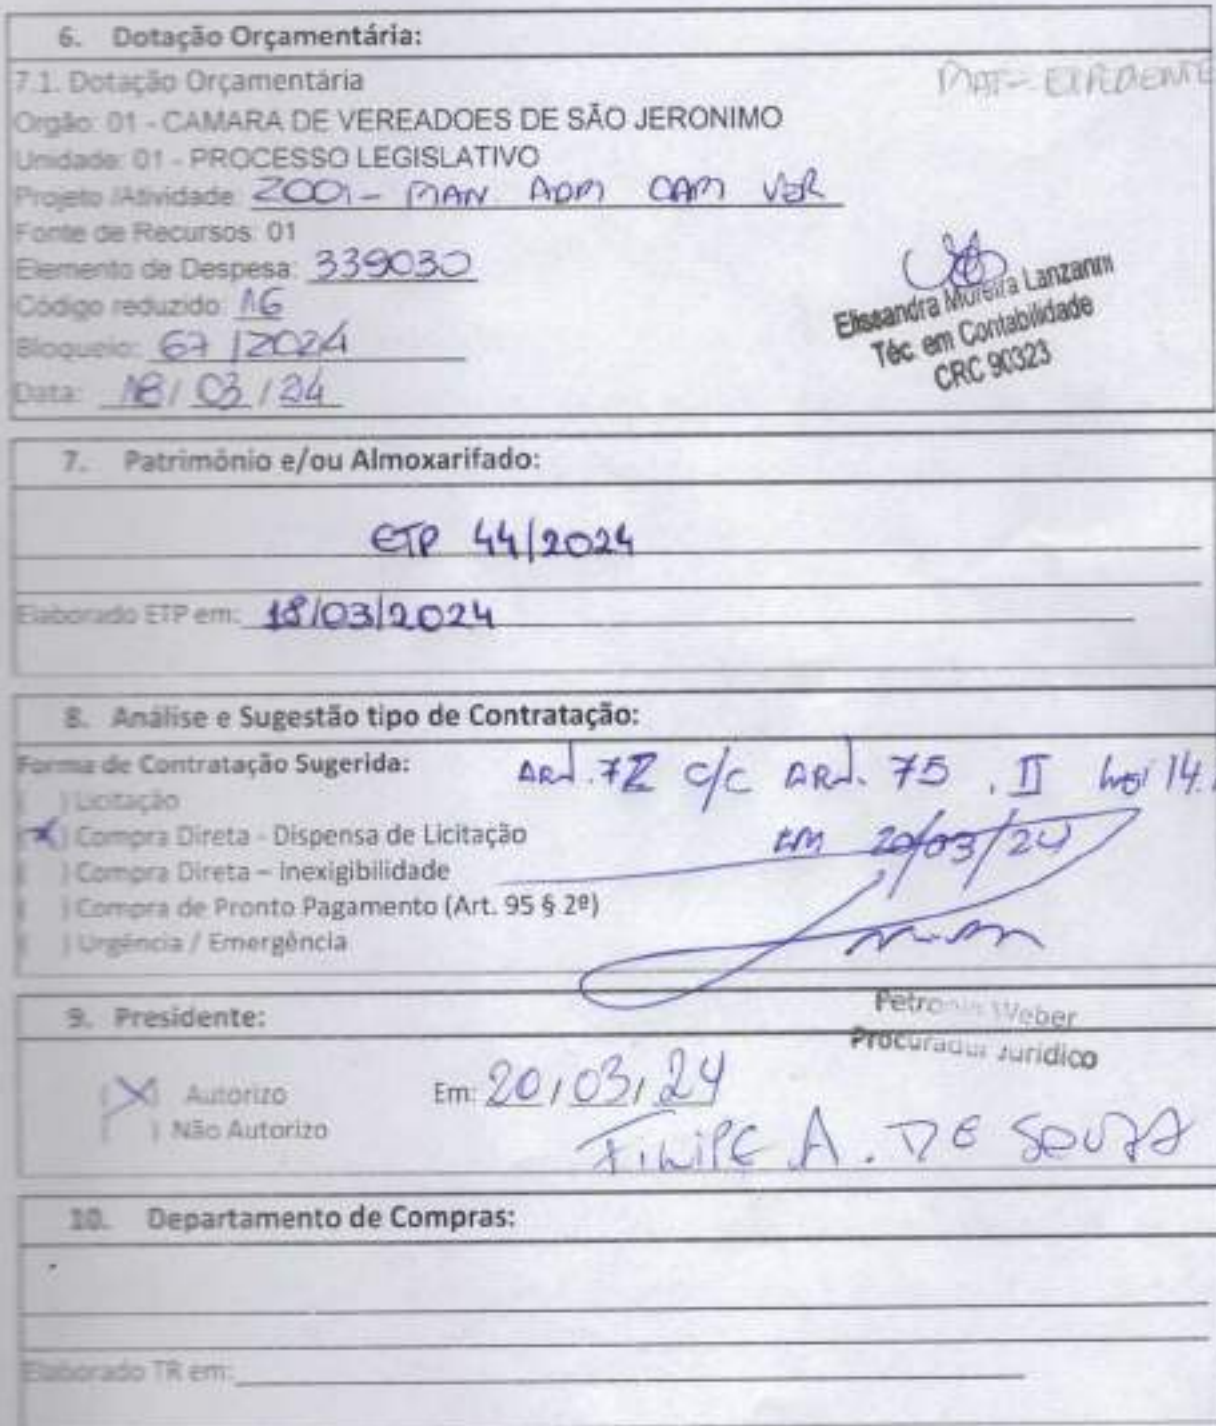 6. Dotação Orçamentária:
7.1. Dotação Orçamentária
MAT- EXPEDIENTE
Orgão: 01 - CAMARA DE VEREADOES DE SÃO JERONIMO
Unidade: 01 - PROCESSO LEGISLATIVO
Projeto /Atividade: 2001- MAN ADM CAM VER
Fonte de Recursos: 01
Elemento de Despesa: 339030
Código reduzido: 16
Bloqueio: 67 /2024
Data: 18/ 03 /24
Elissandra Moreira Lanzanni
Téc em Contabilidade
CRC 90323
7. Patrimônio e/ou Almoxarifado:
ETP 44/2024
Elaborado ETP em: 18/03/2024
8. Análise e Sugestão tipo de Contratação:
Forma de Contratação Sugerida:
ART. 72 c/c ART. 75, II Lei 14.
( ) Licitação
(X) Compra Direta - Dispensa de Licitação
EM 20/03/24
( ) Compra Direta – Inexigibilidade
( ) Compra de Pronto Pagamento (Art. 95 § 2º)
( ) Urgência / Emergência
Petronio Weber
Procurador Juridico
9. Presidente:
(X) Autorizo Em: 20/03/24
( ) Não Autorizo
FILIPE A. DE SOUZA
10. Departamento de Compras:
Elaborado TR em: